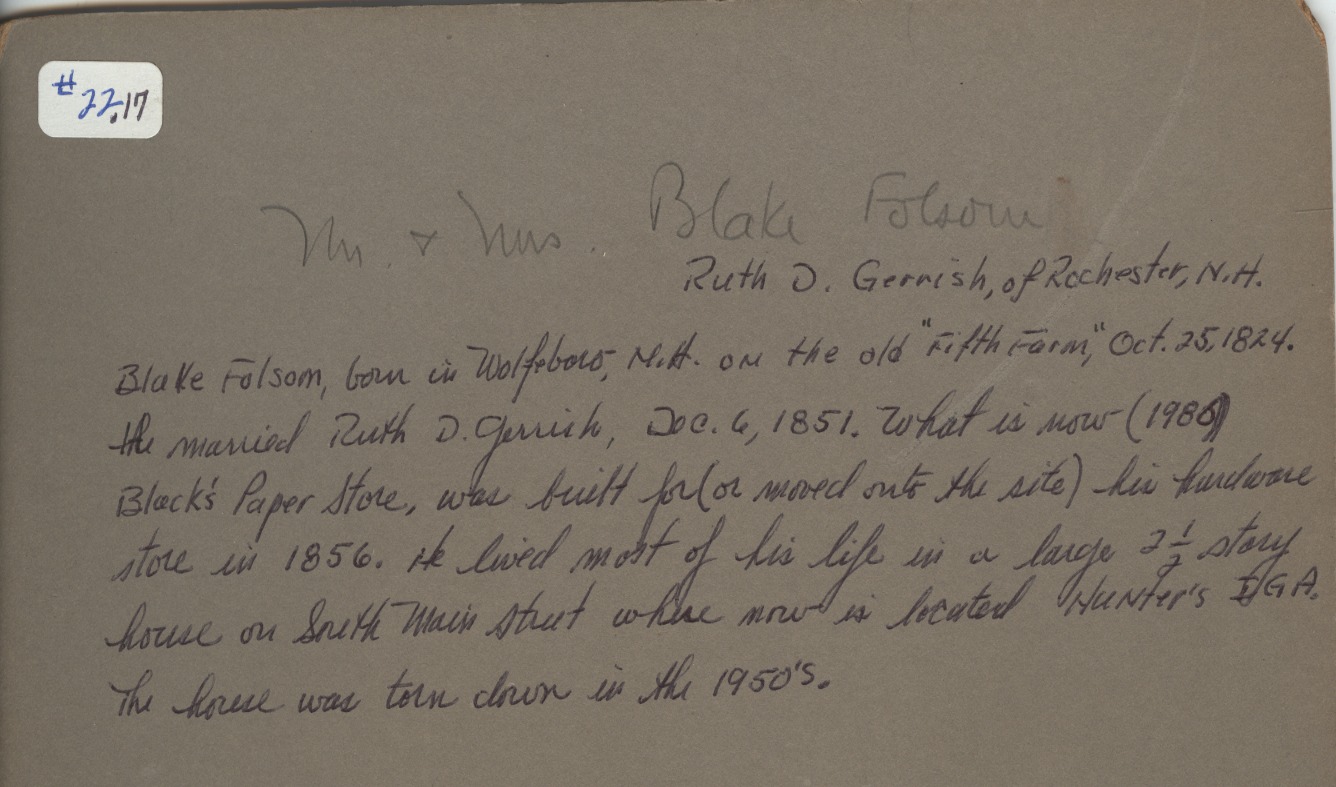 #22.17
Mr. & Mrs. Blake Folsom
Ruth D. Gerrish, of Rochester, N.H.
Blake Folsom, born in Wolfeboro, N.H. on the old "Fifth Farm," Oct. 25, 1824.
He married Ruth D. Gerrish, Dec. 6, 1851. What is now (1986)
Black's Paper Store, was built for (or moved onto the site) his hardware
store in 1856. He lived most of his life in a large 2 1/2 story
house on South Main Street where now is located Hunter's IGA.
The house was torn down in the 1950's.